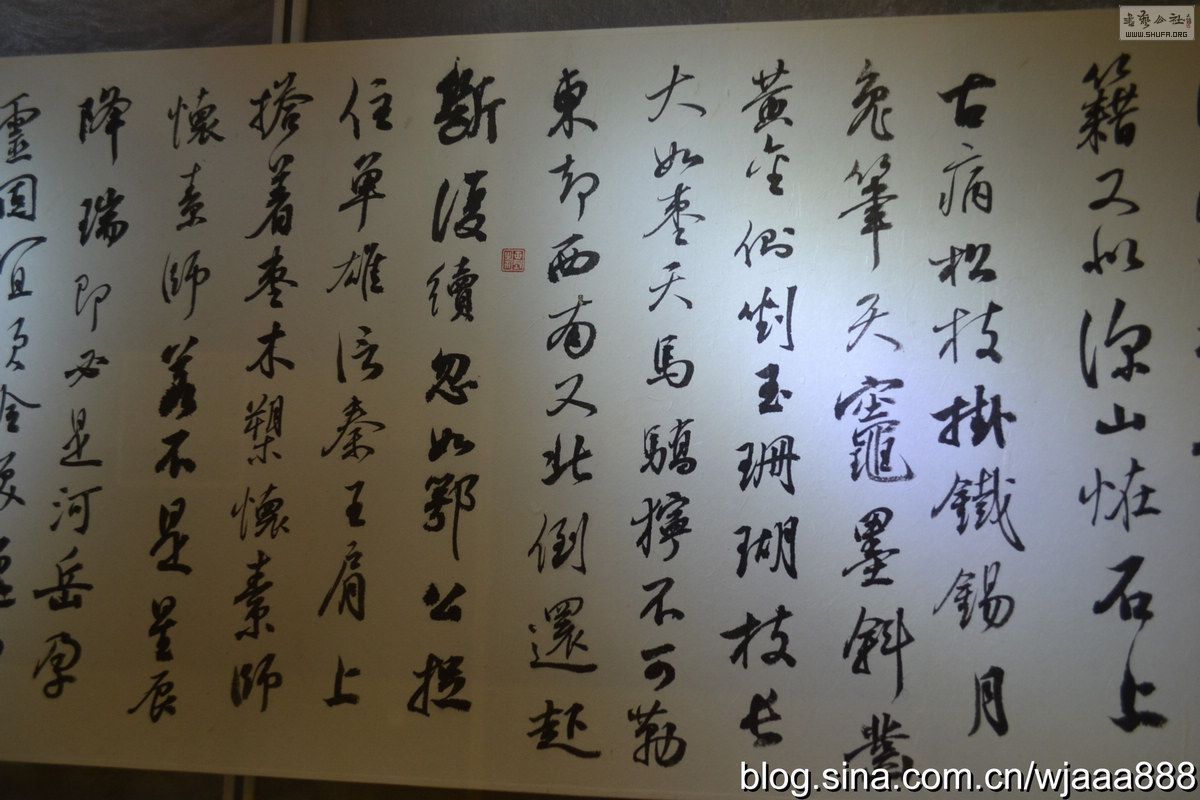 籍又似深山怪石上
古病松枝掛鐵錫月
兔筆天竈墨斜鑿
黃金側剉玉珊瑚枝長
大如棗天馬驕獰不可勒
東却西南又北倒還起
斷復續忽如鄂公捉
住單雄信秦王肩上
搭着棗木槊懷素師
懷素師若不是星辰
降瑞即必是河岳孕
靈固宜須冷笑
書藝公社
WWW.SHUFA.ORG
blog.sina.com.cn/wjaaa888